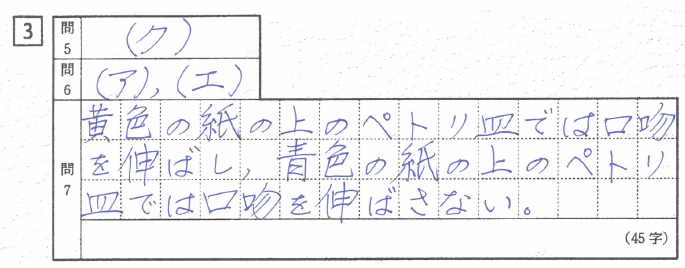 3
問5 (ク)
問6 (ア),(エ)
問7
黄色の紙の上のペトリ皿では口吻
を伸ばし,青色の紙の上のペトリ
皿では口吻を伸ばさない。
(45字)